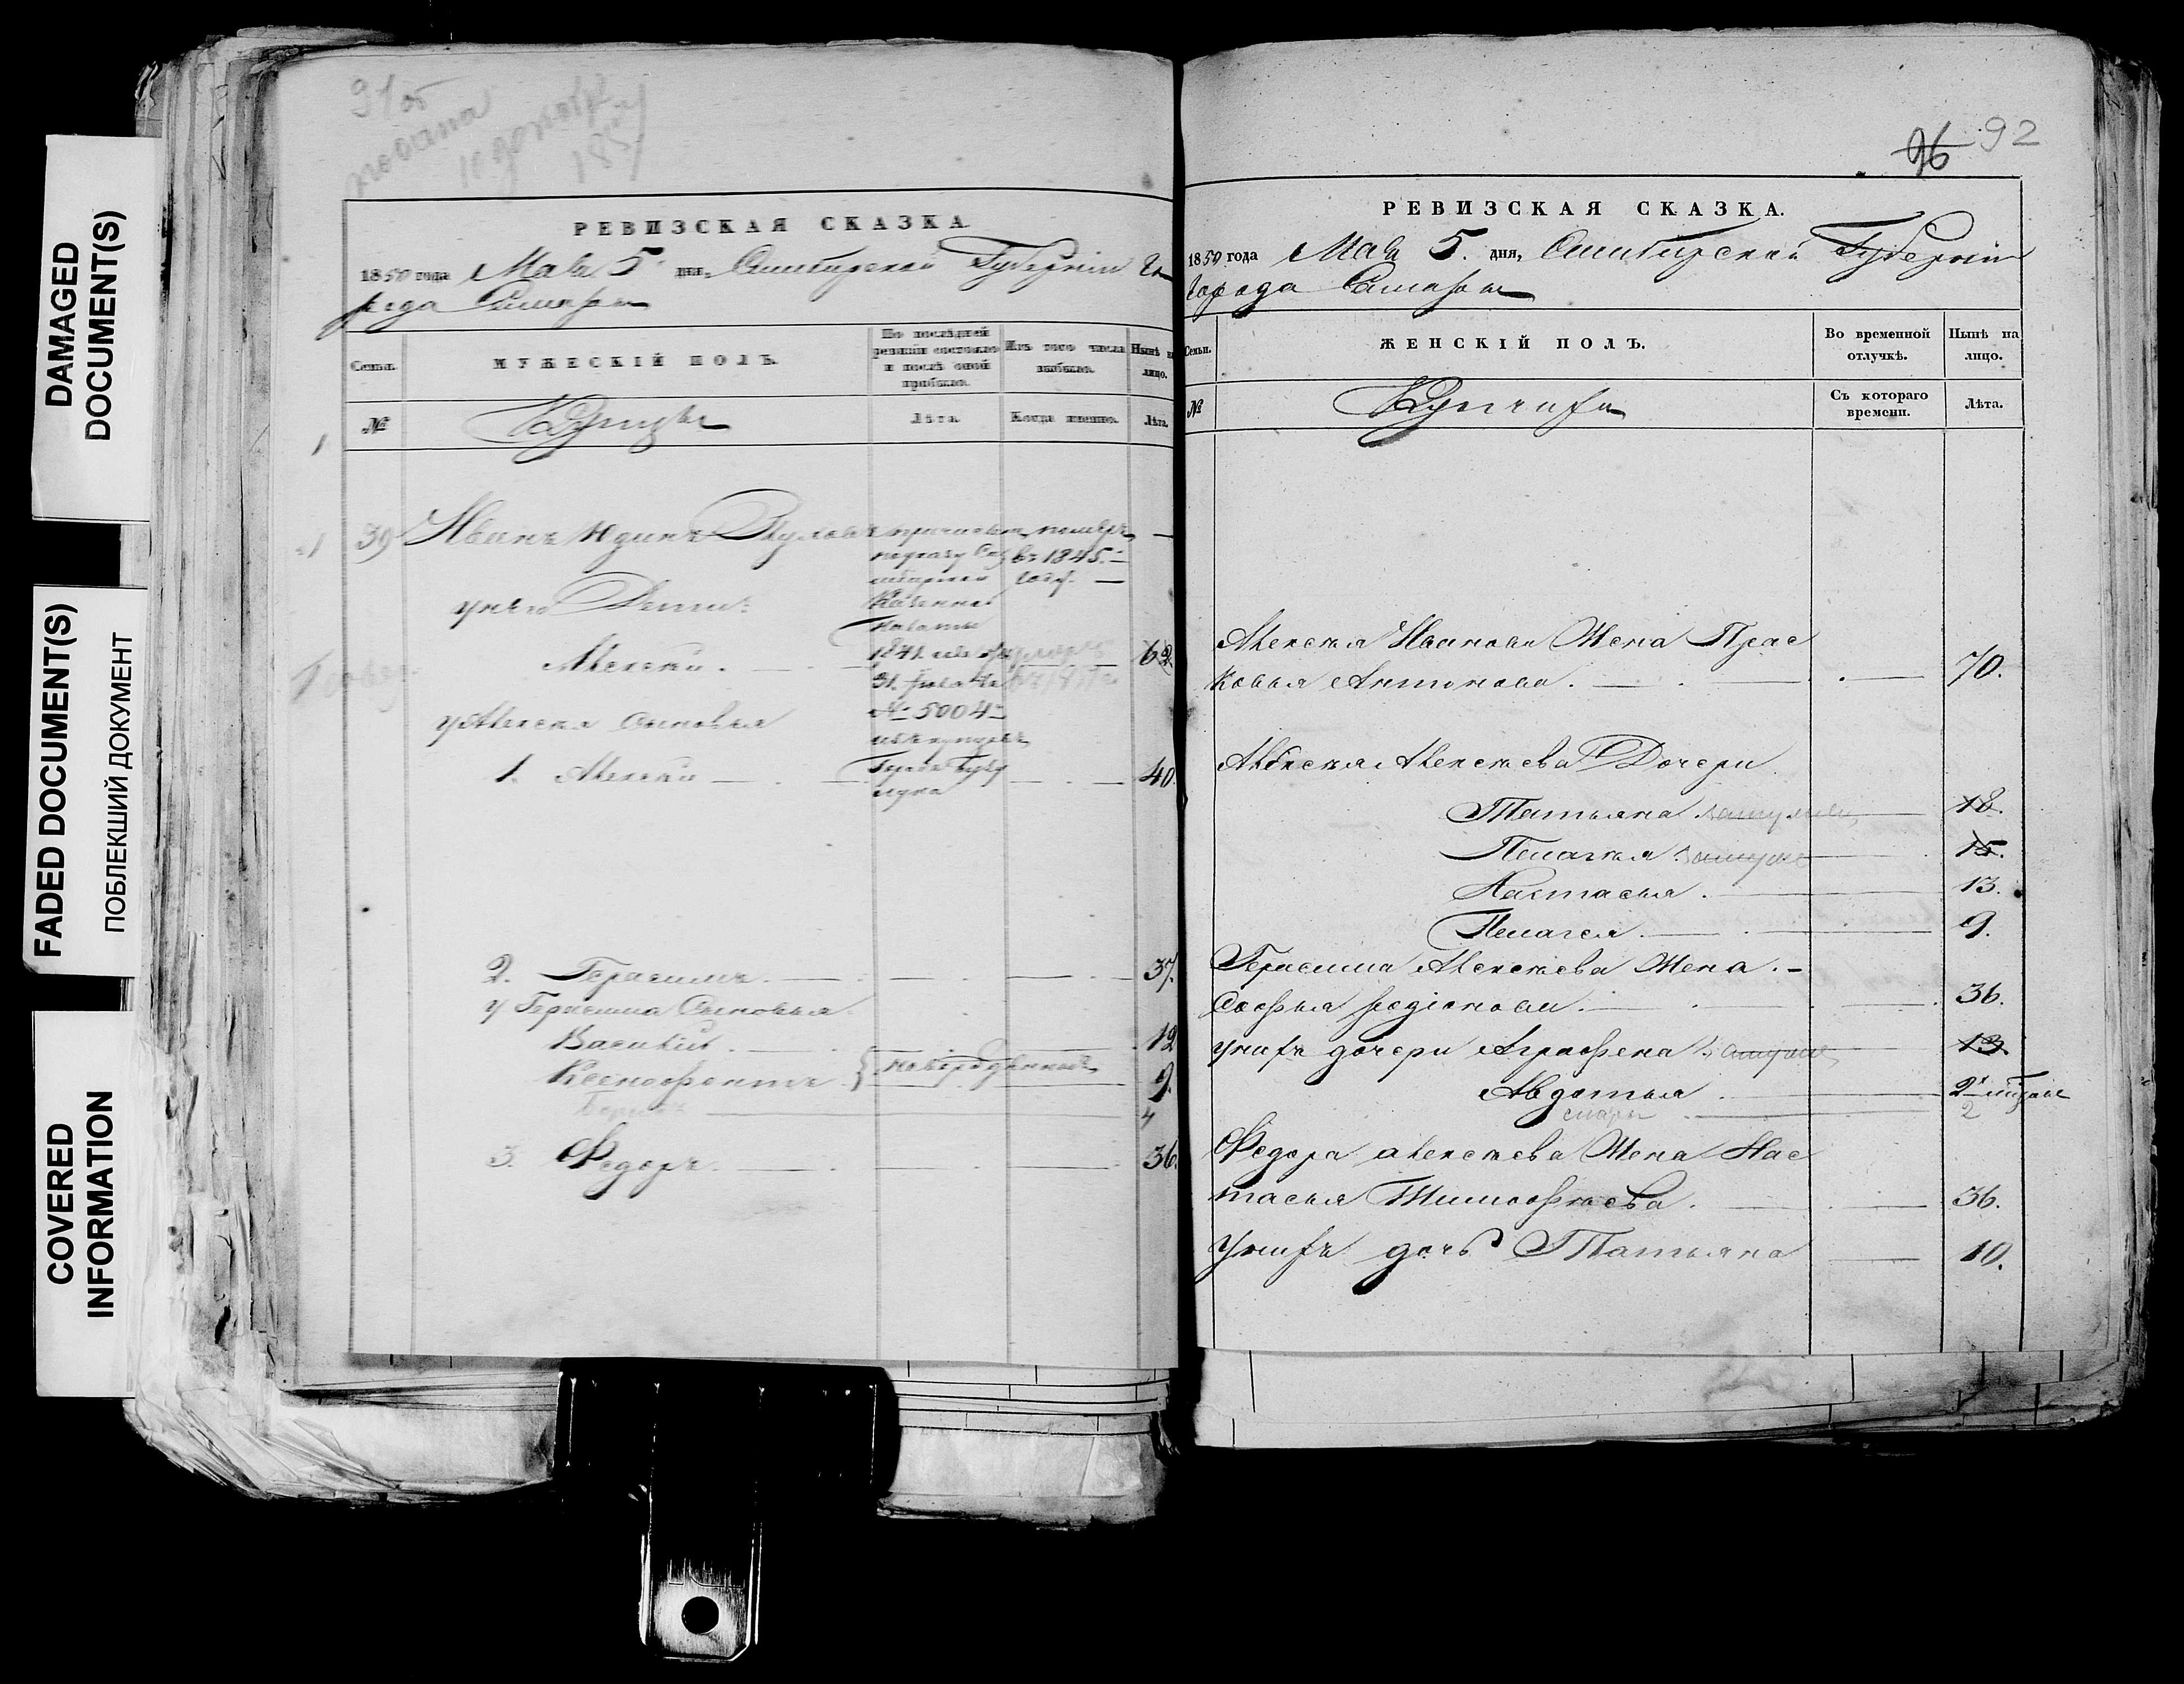 DAMAGED
DOCUMENT(S)
FADED DOCUMENT(S)
ПОБЛЕКШИЙ ДОКУМЕНТ
COVERED
INFORMATION
91 об
185
РЕВИЗСКАЯ СКАЗКА.
1850 года Мая 5 дня, Симбирской Губернiи Го
рода Самары
Семьи.
МУЖЕСКIЙ ПОЛЪ.
По послѣдней
ревизiи состояло
и послѣ оной
прибыло.
Изъ того числа
выбыло.
Нынѣ на
лицо.
№
Купцы
Лѣта.
Когда именно.
Лѣта.
1
39 Иванъ Юдинъ
померъ
въ 1845.
году.
у него Дѣти:
Казенной
Палаты
Алексѣй. 62
1841
31. Iюля за
№ 5004
у Алексѣя Сыновья
изъ купцовъ
1. Алексѣй 40.
Города Бузу
лука
2. Герасимъ. 37.
у Герасима Сыновья
Василiй. 12
Ксенофонтъ. новорожденные 9.
4
3. Федоръ. 36.
96 92
РЕВИЗСКАЯ СКАЗКА.
1850 года Мая 5. дня, Симбирской Губернiи
Города Самары
Семьи.
ЖЕНСКIЙ ПОЛЪ.
Во временной
отлучкѣ.
Нынѣ на
лицо.
№
Купчихи
Съ котораго
времени.
Лѣта.
Алексѣя Иванова Жена Прас
ковья Антонова. 70.
Алексѣя Алексѣева Дочери
Татьяна замужемъ 18.
Пелагѣя замуже 15.
Настасья. 13.
Пелагея. 9.
Герасима Алексѣева Жена.
Софья Родiонова. 36.
у нихъ дочери Аграфена замуже 13.
Авдотья 2
2
Федора Алексѣева Жена Нас
тасья Тимофѣева. 36.
У нихъ дочь Татьяна 10.